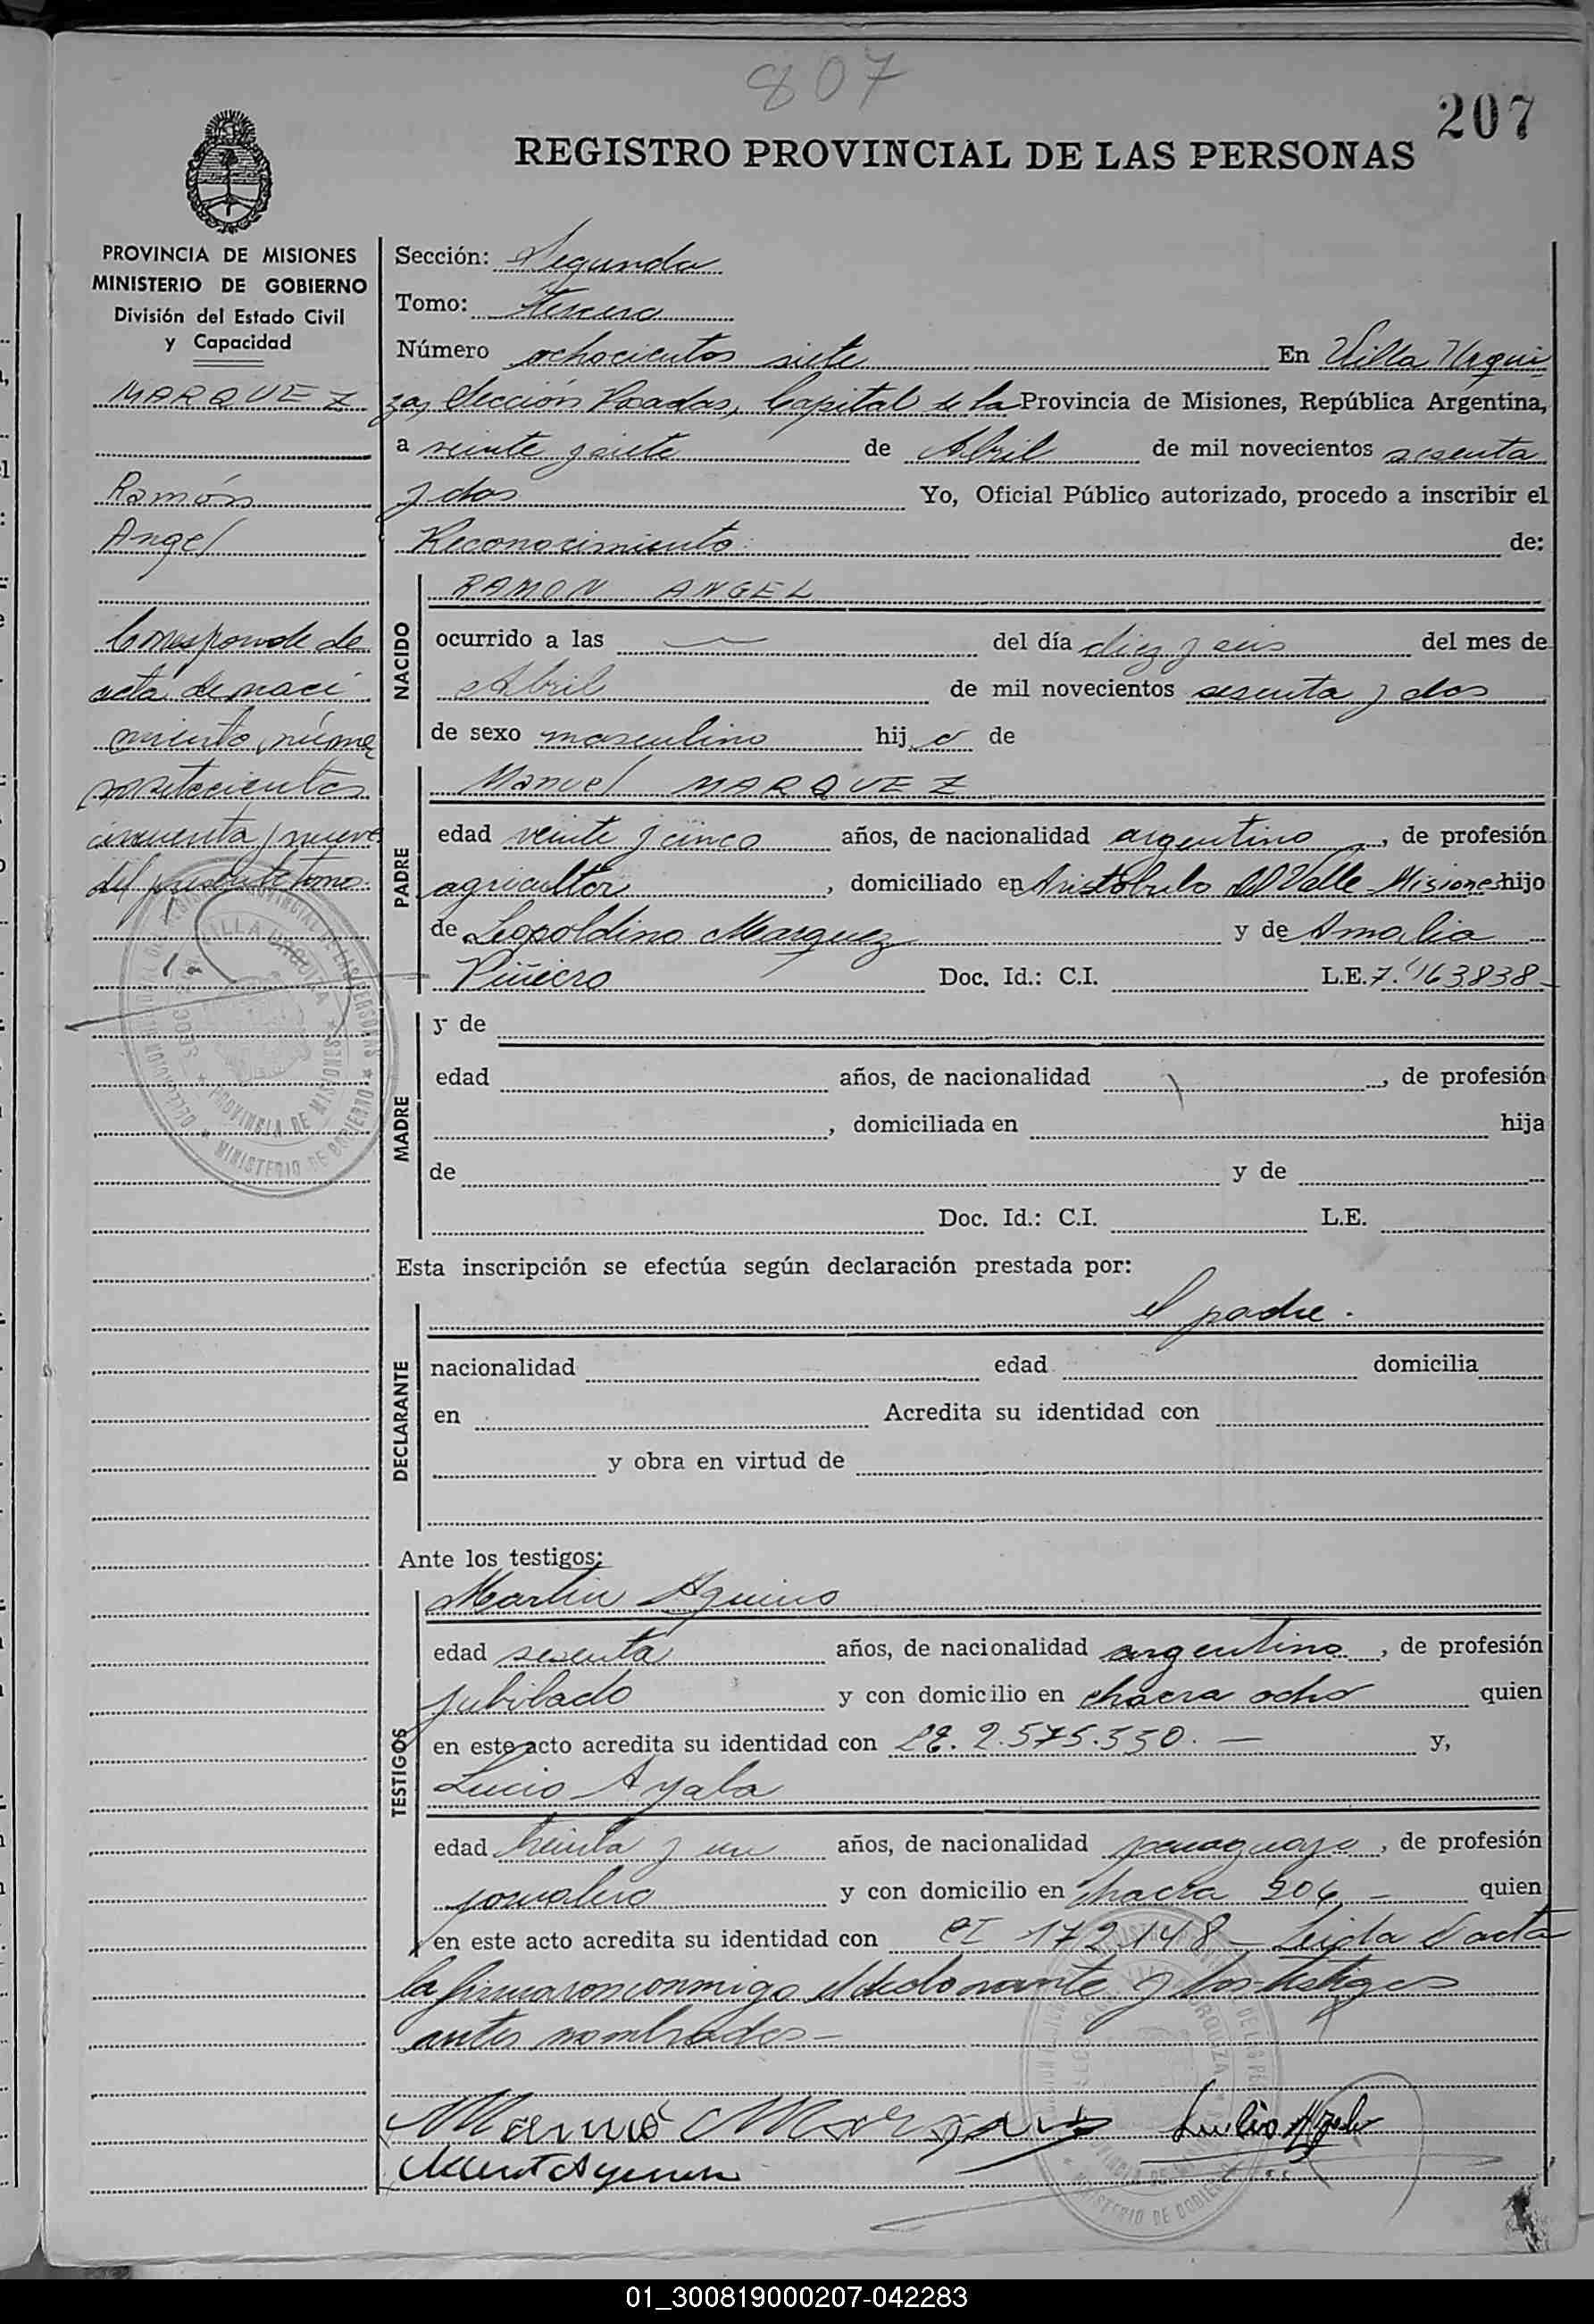 807
207
REGISTRO PROVINCIAL DE LAS PERSONAS
PROVINCIA DE MISIONES
MINISTERIO DE GOBIERNO
División del Estado Civil
y Capacidad
MARQUEZ
Ramón
Angel
Corresponde de
acta de naci
miento, núme
ro setecientos
cincuenta y nueve
del presente tomo.
Sección: Segunda
Tomo: Tercero
Número ochocientos siete En Villa Urqui
za, Sección Posadas, Capital de la Provincia de Misiones, República Argentina,
a veinte y siete de Abril de mil novecientos sesenta
y dos Yo, Oficial Público autorizado, procedo a inscribir el
Reconocimiento de:
NACIDO
RAMON ANGEL
ocurrido a las — del día diez y seis del mes de
Abril de mil novecientos sesenta y dos
de sexo masculino hijo de
PADRE
Manuel MARQUEZ
edad veinte y cinco años, de nacionalidad argentino, de profesión
agricultor, domiciliado en Aristóbulo del Valle Misiones hijo
de Leopoldino Marquez y de Amalia
Piñeiro Doc. Id.: C.I. L.E. 7.463838
MADRE
y de
edad años, de nacionalidad , de profesión
, domiciliada en hija
de y de
Doc. Id.: C.I. L.E.
Esta inscripción se efectúa según declaración prestada por:
DECLARANTE
el padre.
nacionalidad edad domicilia
en Acredita su identidad con
y obra en virtud de
Ante los testigos:
TESTIGOS
Martin Aquino
edad sesenta años, de nacionalidad argentino, de profesión
jubilado y con domicilio en chacra ocho quien
en este acto acredita su identidad con LE. 2.575.330. — y,
Lucio Ayala
edad treinta y un años, de nacionalidad paraguayo, de profesión
jornalero y con domicilio en chacra 206 — quien
en este acto acredita su identidad con CI 172.148 — Leida el acta
la firmaron conmigo el declarante y los testigos
antes nombrados —
01_300819000207-042283